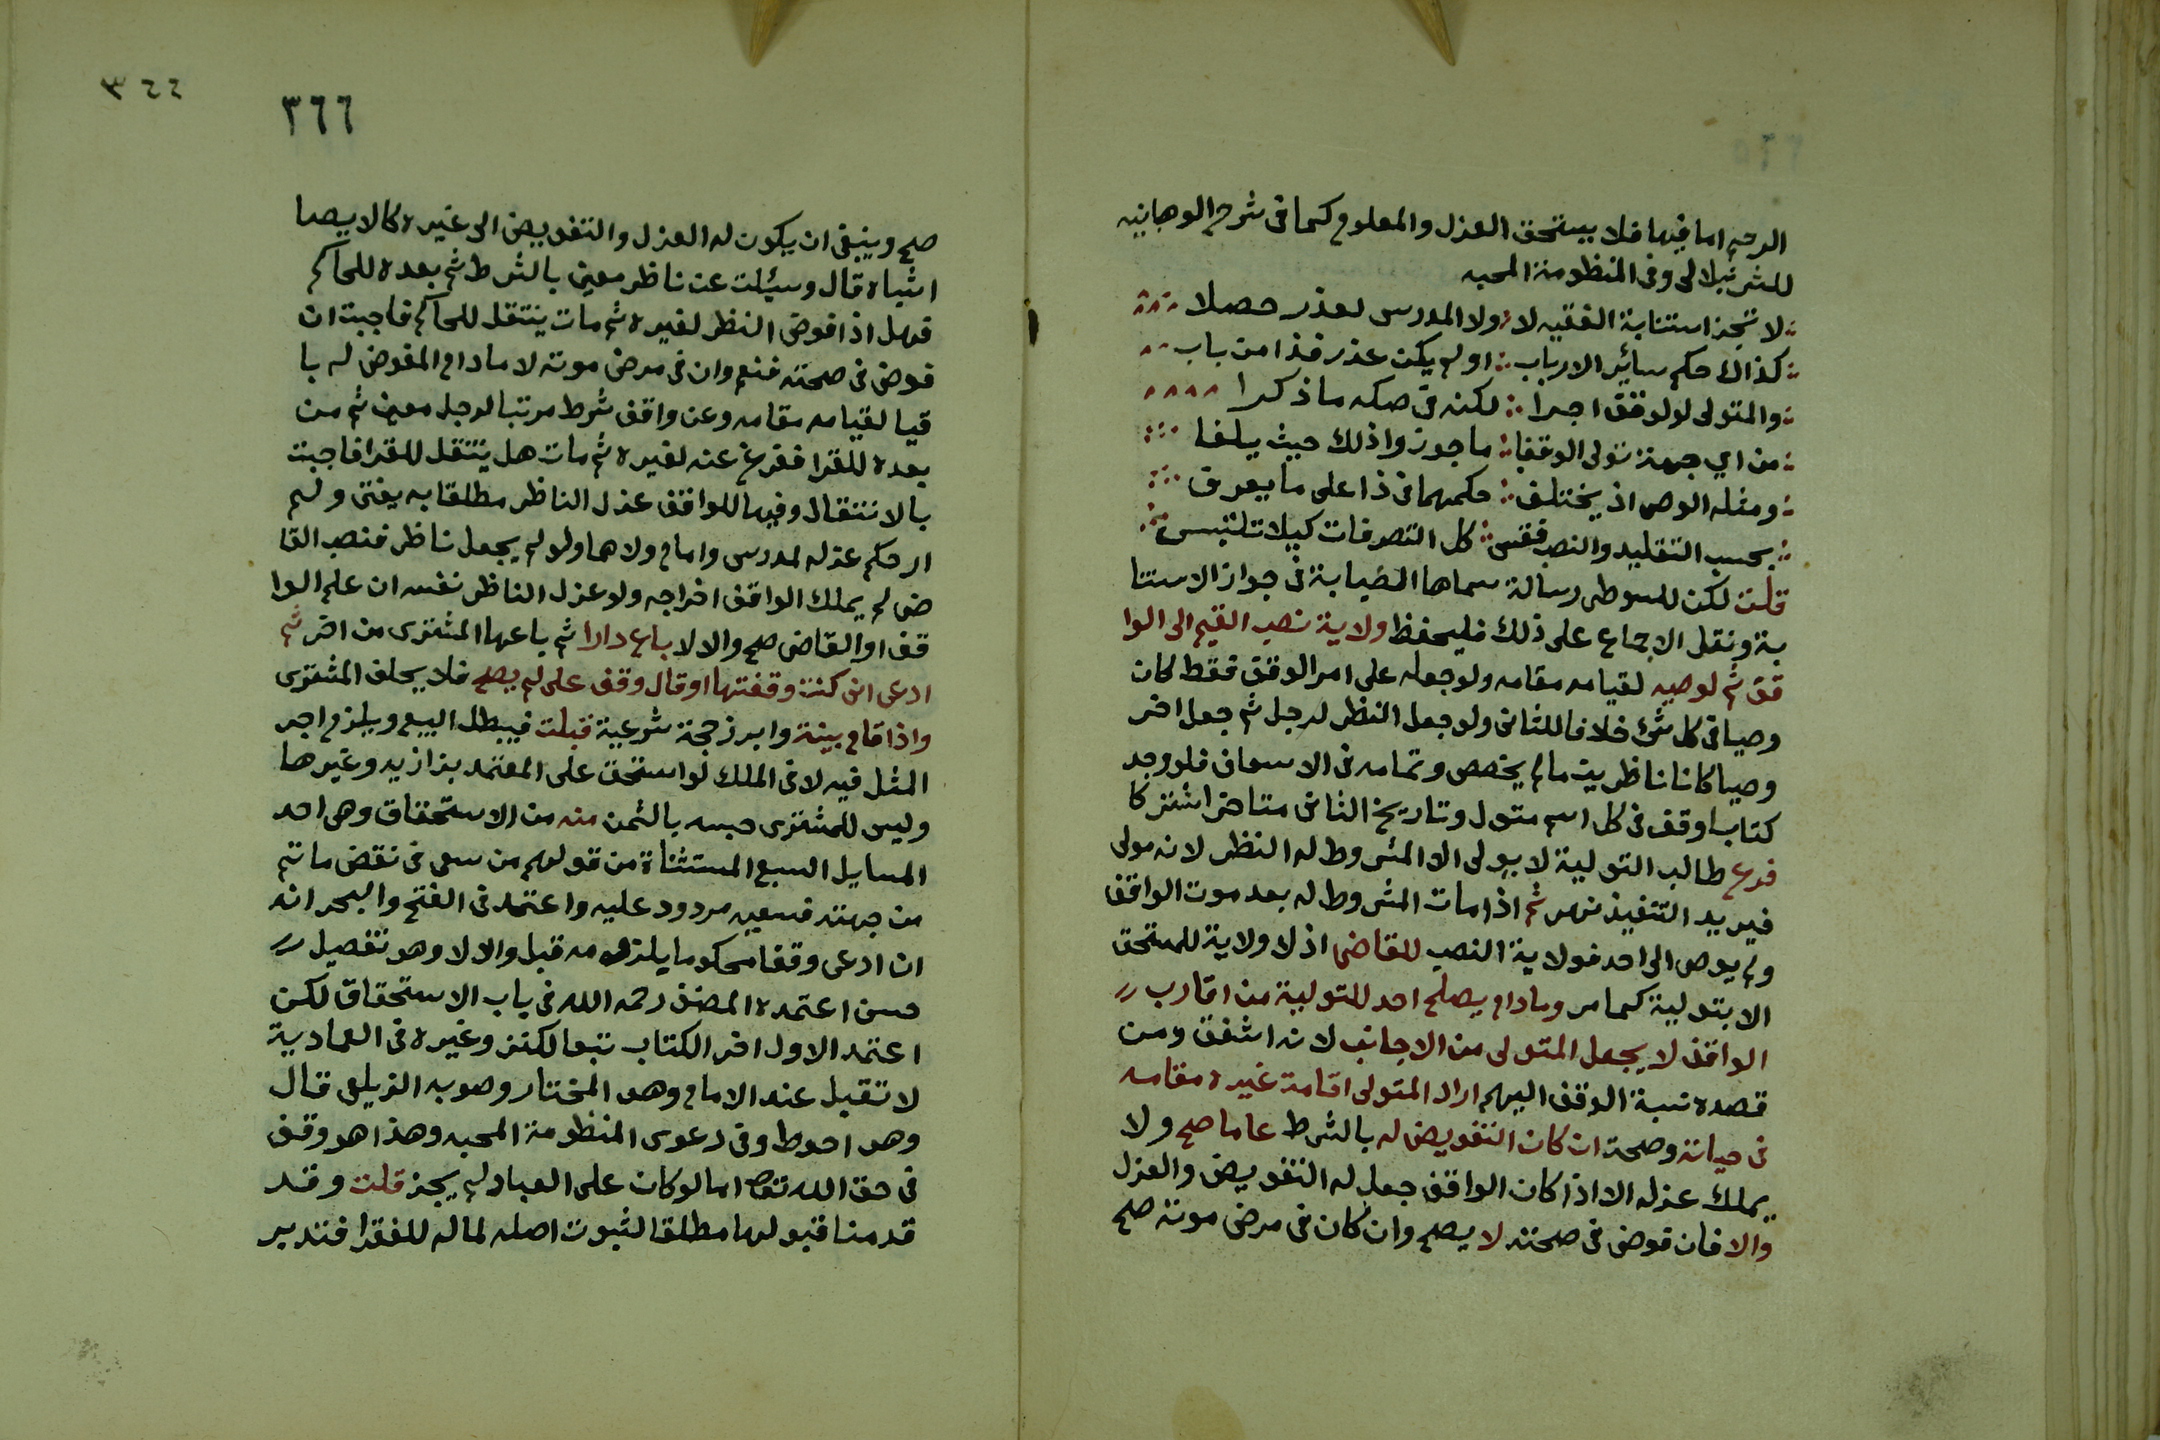 الرحم اما فيها فلا يستحق العزل والمعلوم كما فى شرح الوهبانيه
للشرنبلالى وفى المنظومة المحبيه
لا تجز استنابة الفقيه لا ولا المدرس لعذر حصلا
كذاك حكم سائر الارباب اولم يكن عذر فذا من باب
والمتولى لولوقف اجرا لكنه فى صكه ما ذكرا
من اي جهة تولى الوقفا ما جوزوا ذلك حيث يلفا
ومثله الوصى اذ يختلف حكمهما فى ذا على ما يعرف
بحسب التقليد والنصب فقس كل التصرفات كيلا تلتبس
قلت لكن للسيوطى رسالة سماها الضبابة فى جواز الاستنا
بة ونقل الاجماع على ذلك فليحفظ ولاية نصب القيم الى الوا
قف ثم لوصيه لقيامه مقامه ولو جعله على امر الوقف فقط كان
وصيا فى كل شئ خلافا للثانى ولو جعل النظر لرجل ثم جعل اخر
وصيا كانا ناظرين مالم يخصص وتمامه فى الاسعاف فلو وجد
كتابا وقف فى كل اسم متول وتاريخ الثانى متاخر اشتركا
فرع طالب التولية لا يولى الا المشروط له النظر لانه مولى
فيريد التنفيذ نهر ثم اذا مات المشروط له بعد موت الواقف
ولم يوص الى احد فولاية النصب للقاضى اذ لا ولاية للمستحق
الا بتولية كما مر ومادام يصلح احد للتولية من اقارب
الواقف لا يجعل المتولى من الاجانب لانه اشفق ومن
قصده نسبة الوقف اليهم اراد المتولى اقامة غيره مقامه
فى حياته وصحته ان كان التفويض له بالشرط عاما صح ولا
يملك عزله الا اذا كان الواقف جعل له التفويض والعزل
والا فان فوض فى صحته لا يصح وان كان فى مرض موته صح
٣٦٦
٣٦٦
صح وينبغى ان يكون له العزل والتفويض الى غيره كالايصا
اشباه قال وسئلت عن ناظر معين بالشرط ثم بعده للحاكم
فهل اذا فوض النظر لغيره ثم مات ينتقل للحاكم فاجبت ان
فوض فى صحته فنعم وان فى مرض موته لا مادام المفوض له با
قيا لقيامه مقامه وعن واقف شرط مرتبا لرجل معين ثم من
بعده للفقرا ففرغ عنه لغيره ثم مات هل ينتقل للفقرا فاجبت
بالانتقال وفيها للواقف عزل الناظر مطلقا به يفتى ولم
ار حكم عزله لمدرس وامام ولاهما ولو لم يجعل ناظر فنصب القا
ضى لم يملك الواقف اخراجه ولو عزل الناظر نفسه ان علم الوا
قف او القاضى صح والا لا باع دارا ثم باعها المشترى من اخر ثم
ادعى انى كنت وقفتها او قال وقف على لم يصح فلا يحلف المشترى
واذا قام بينة وابرز حجة شرعية قبلت فيبطل البيع ويلزم اجر
المثل فيه لا فى الملك لو استحق على المعتمد بزازيه وغيرها
وليس للمشترى حبسه بالثمن منه من الاستحقاق وهى احد
المسايل السبع المستثناة من قولهم من سعى فى نقض ما تم
من جهته فسعيه مردود عليه واعتمد فى الفتح والبحر انه
ان ادعى وقفا محكوما بلزومه قبل والا لا وهو تفصيل
حسن اعتمده المصنف رحمه الله فى باب الاستحقاق لكن
اعتمد الاول اخر الكتاب تبعا لكنز وغيره فى العمادية
لا تقبل عند الامام وهو المختار وصوبه الزيلعى قال
وهو احوط وفى دعوى المنظومة المحبيه وهذا هو وقف
فى حق الله تعالى اما لو كان على العباد لم يجز قلت وقد
قدمنا قبولها مطلقا لثبوت اصله لماله للفقرا فتدبر